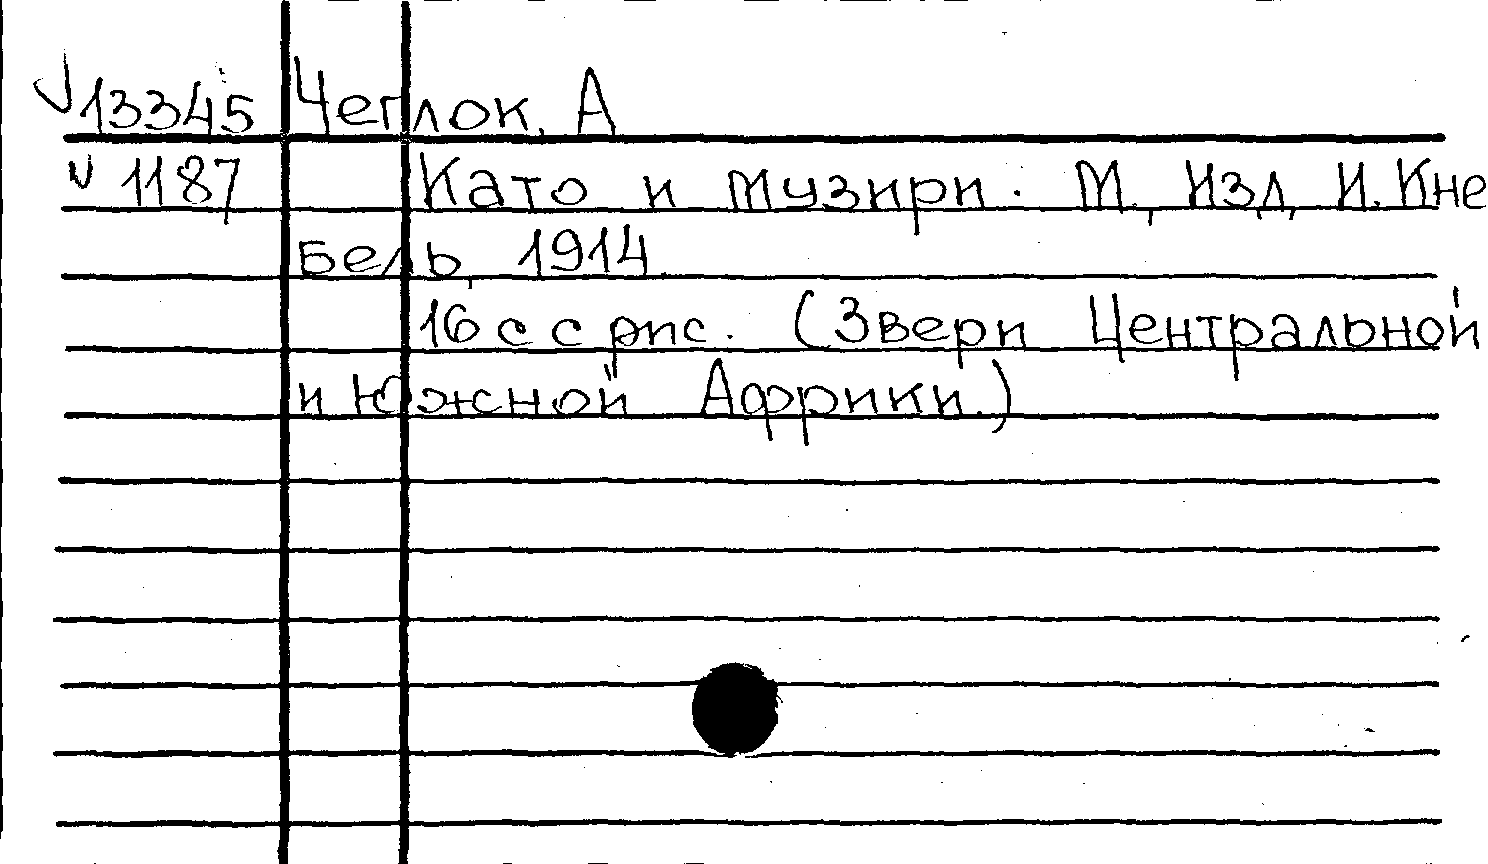 √13345 Чеглок, А
√ 1187 Като и Музири. М., Изд, И. Кне
бель, 1914
16 с с рис. (Звери Центральной
и Южной Африки.)